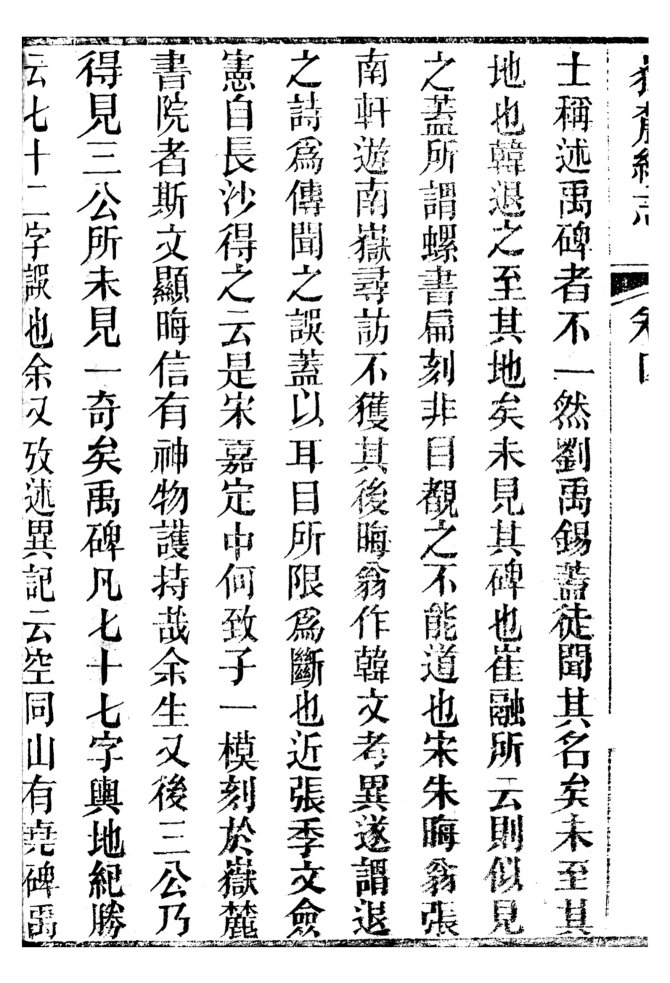 嶽麓續志 卷四
士稱述禹碑者不一然劉禹錫蓋徒聞其名矣未至其
地也韓退之至其地矣未見其碑也崔融所云則似見
之蓋所謂螺書扁刻非目覩之不能道也宋朱晦翁張
南軒遊南嶽尋訪不獲其後晦翁作韓文考異遂謂退
之詩爲傳聞之誤蓋以耳目所限爲斷也近張季文僉
憲自長沙得之云是宋嘉定中何致子一模刻於嶽麓
書院者斯文顯晦信有神物護持哉余生又後三公乃
得見三公所未見一奇矣禹碑凡七十七字輿地紀勝
云七十二字誤也余又攷述異記云空同山有堯碑禹